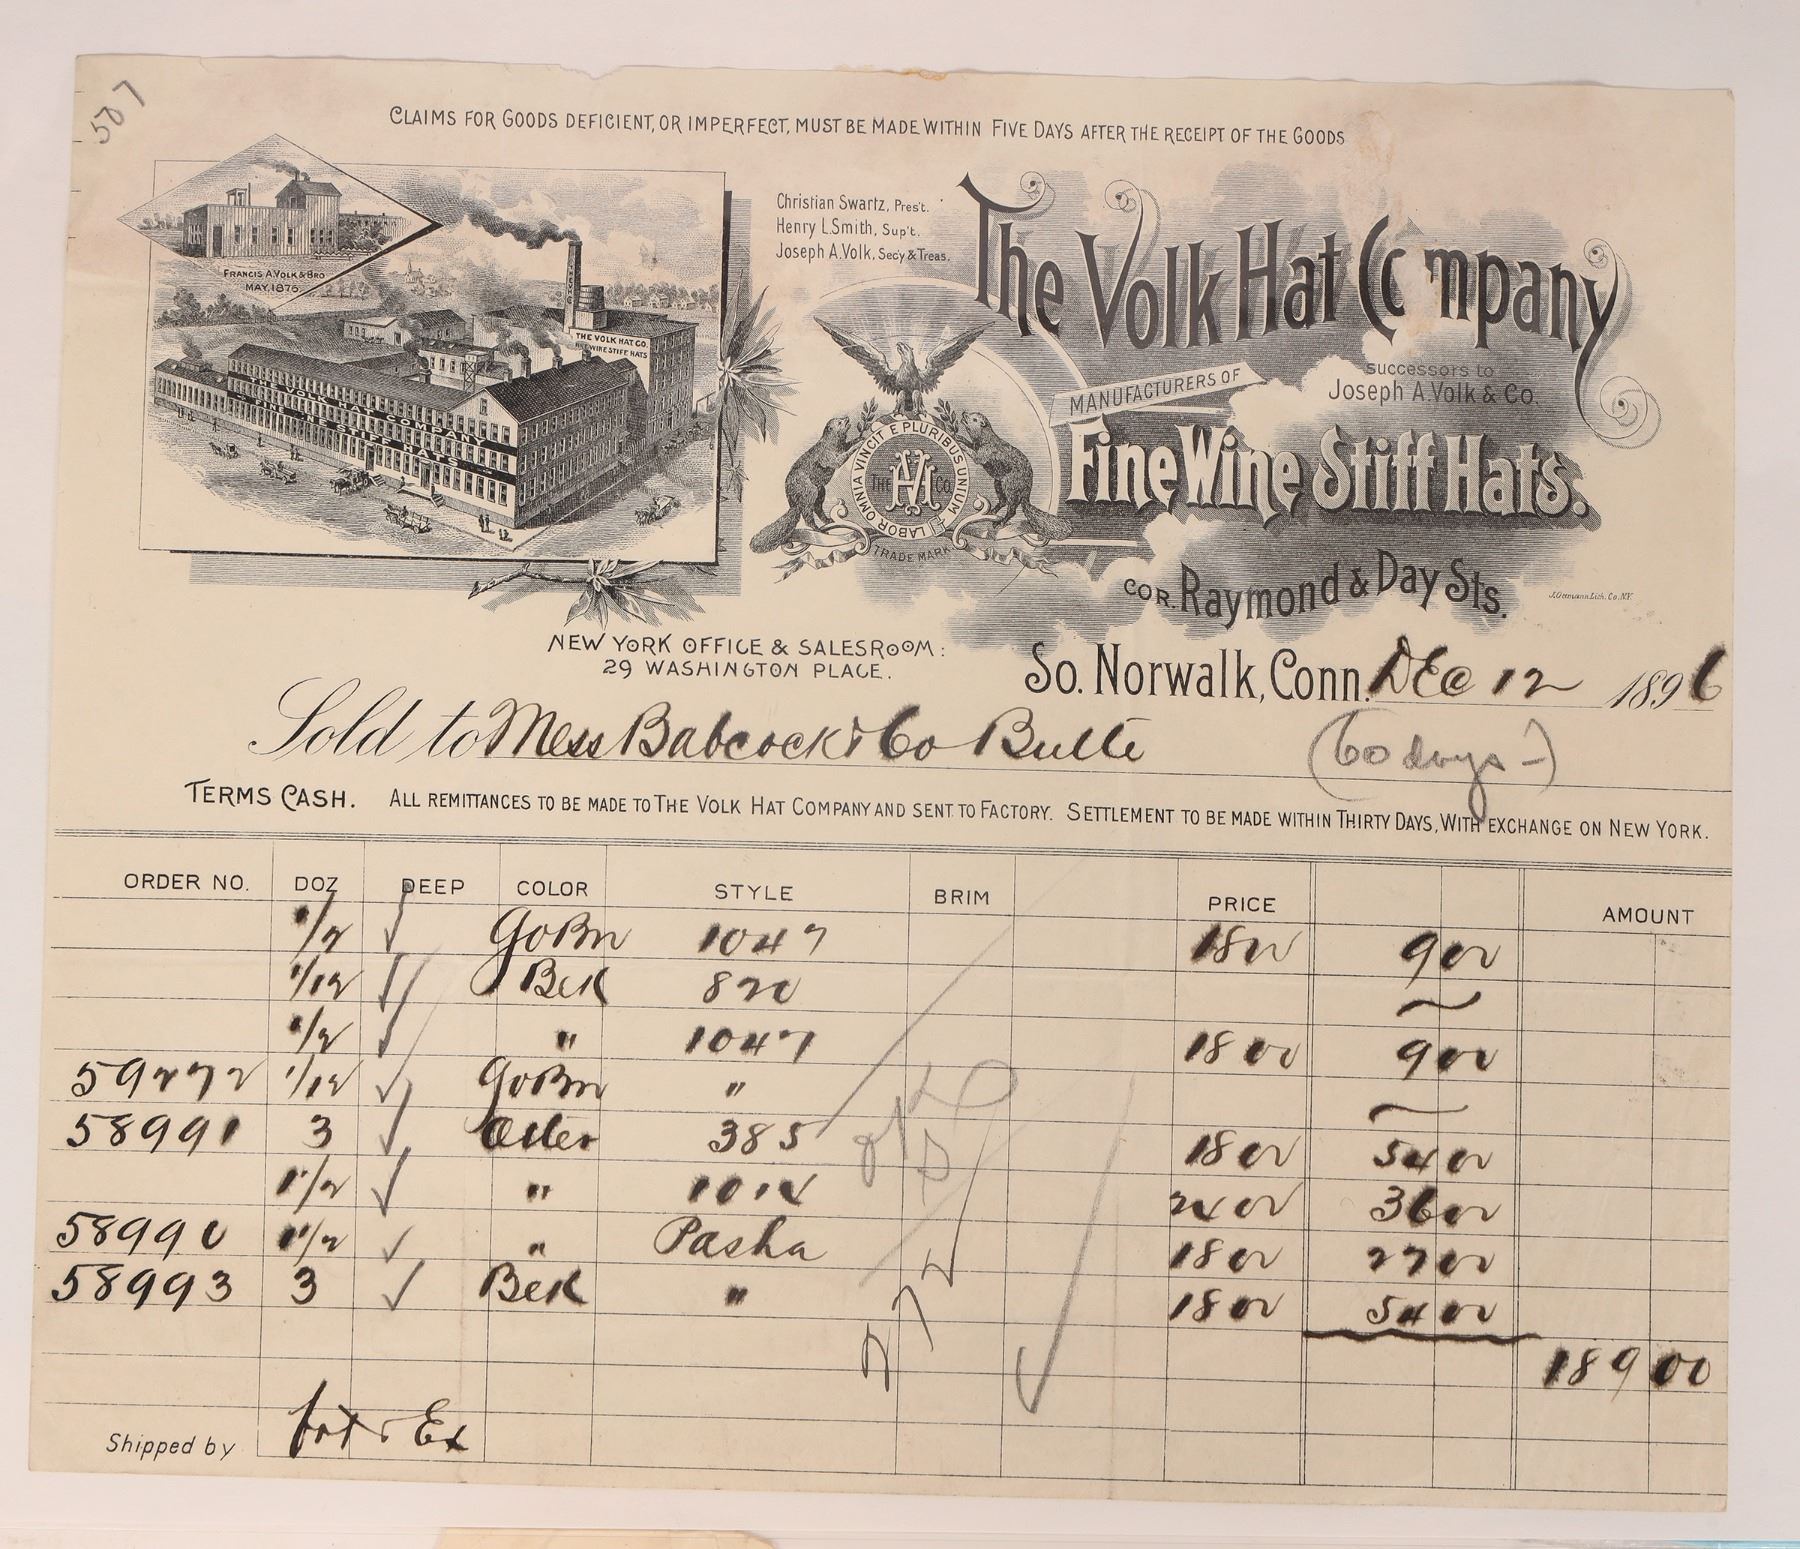 507
CLAIMS FOR GOODS DEFICIENT, OR IMPERFECT, MUST BE MADE WITHIN FIVE DAYS AFTER THE RECEIPT OF THE GOODS
FRANCIS A. VOLK & BRO
MAY. 1876
THE VOLK HAT CO.
FINE WINE STIFF HATS
THE VOLK HAT COMPANY
FINE STIFF HATS
Christian Swartz, Pres't.
Henry L. Smith, Sup't.
Joseph A. Volk, Sec'y & Treas.
The Volk Hat Company
successors to
Joseph A. Volk & Co.
MANUFACTURERS OF
Fine Wine Stiff Hats.
LABOR OMNIA VINCIT E PLURIBUS UNIUM
THE VH Co.
TRADE MARK
COR. Raymond & Day Sts.
J. Ottmann Lith. Co. N.Y.
NEW YORK OFFICE & SALESROOM:
29 WASHINGTON PLACE.
So. Norwalk, Conn. Dec 12 1896
Sold to Mess Babcock & Co Butte (60 days -)
TERMS CASH. ALL REMITTANCES TO BE MADE TO THE VOLK HAT COMPANY AND SENT TO FACTORY. SETTLEMENT TO BE MADE WITHIN THIRTY DAYS, WITH EXCHANGE ON NEW YORK.
ORDER NO. DOZ DEEP COLOR STYLE BRIM PRICE AMOUNT
1/2 GoBrn 1047 1800 900
1/12 Bck 820
1/2 " 1047 1800 900
59272 1/12 GoBrn "
58991 3 385 1800 5400
1 1/2 " 1014 2400 3600
58990 1 1/2 " Pasha 1800 2700
58993 3 Bck " 1800 5400
18900
Shipped by Ex